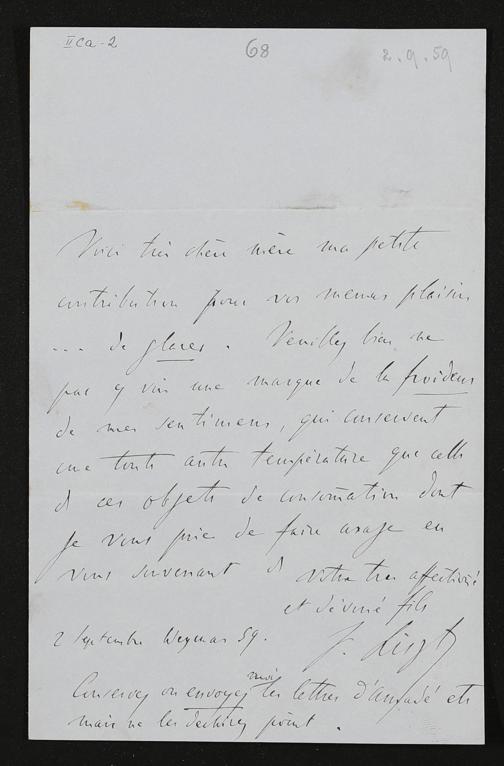 IICa-2
68
2.9.59
Voici très chère mère ma petite
contribution pour vos menus plaisirs
... de glaces. Veuillez bien ne
pas y voir une marque de la froideur
de mes sentimens, qui conservent
une toute autre température que celle
de ces objets de consomation dont
je vous prie de faire usage en
vous souvenant de votre très affectionné
et dévoué fils
2 Septembre Weymar 59. F. Liszt
Conservez ou envoyez moi les lettres d'
mais ne les déchirez point.